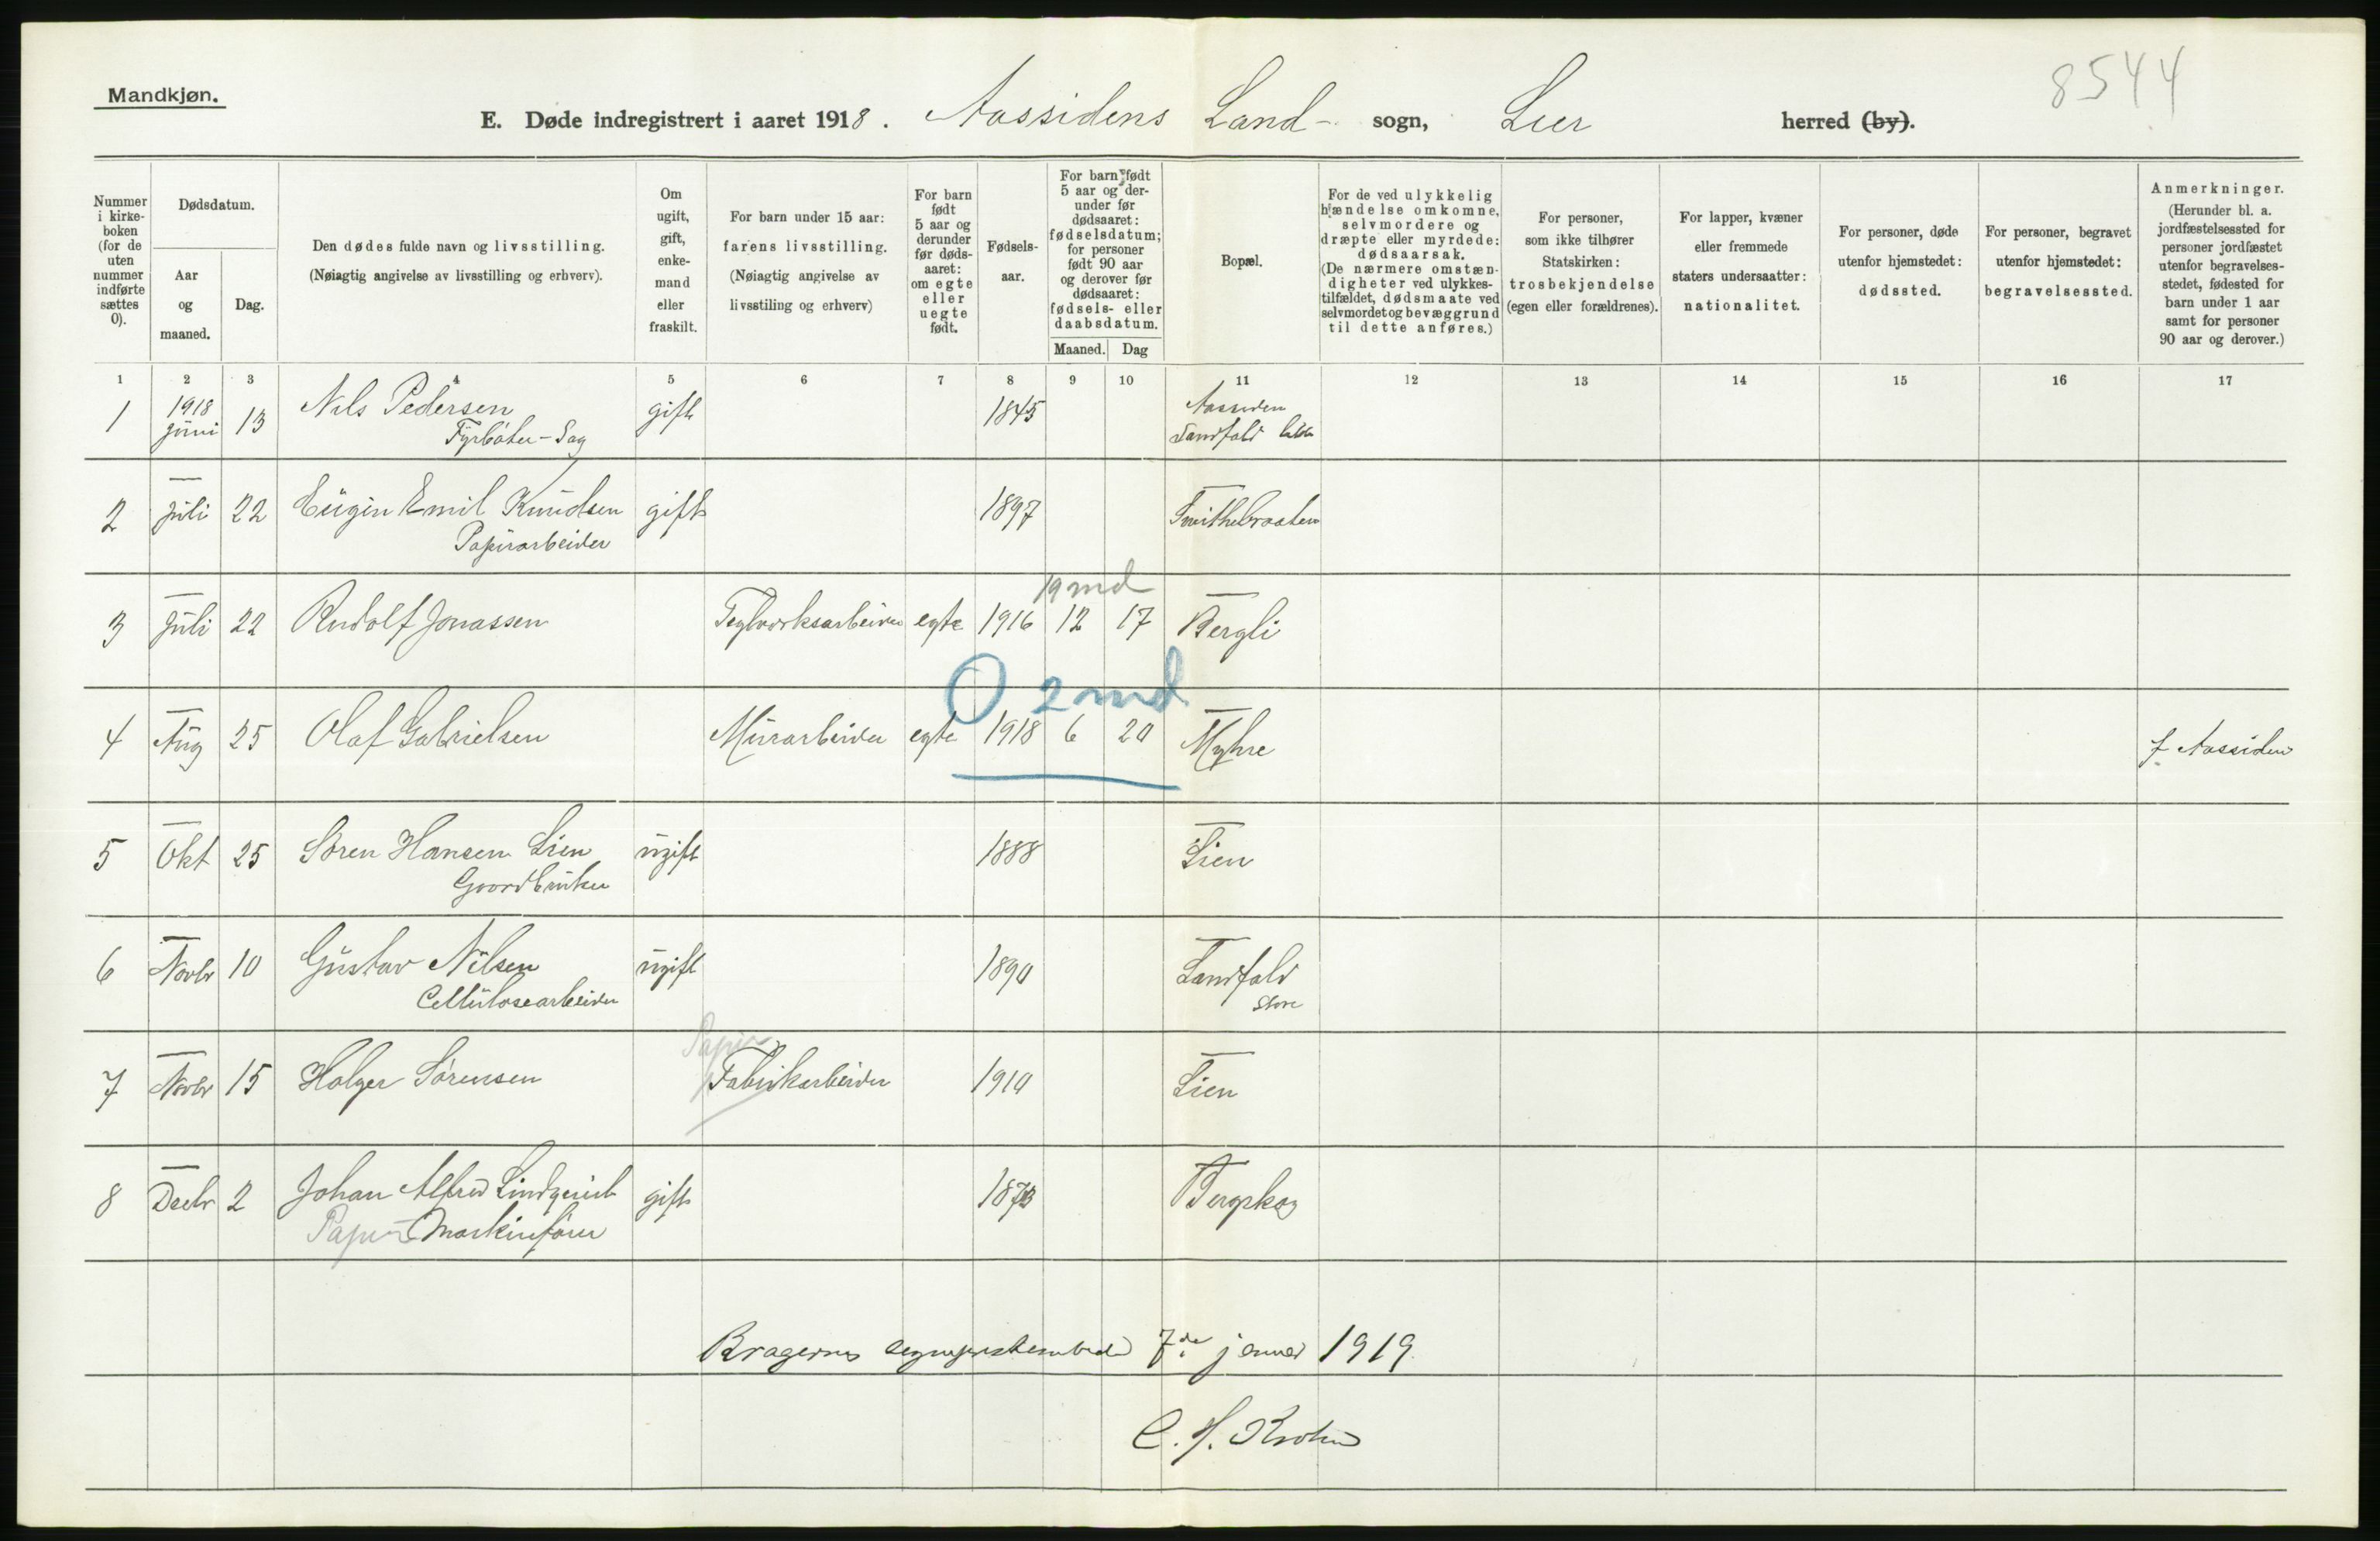 Mandkjøn.
8544
E. Døde indregistrert i aaret 1918. Aassidens Land- sogn, Lier herred (by).
Nummer i kirke-boken (for de uten nummer indførte sættes 0).
Dødsdatum.
Aar og maaned.
Dag.
Den dødes fulde navn og livsstilling.
(Nøiagtig angivelse av livsstilling og erhverv).
Om ugift, gift, enke-mand eller fraskilt.
For barn under 15 aar: farens livsstilling.
(Nøiagtig angivelse av livsstiling og erhverv)
For barn født 5 aar og derunder før døds-aaret: om egte eller uegte født.
Fødsels-aar.
For barn født 5 aar og der-under før dødsaaret: fødselsdatum; for personer født 90 aar og derover før dødsaaret: fødsels- eller daabsdatum.
Maaned.
Dag
Bopæl.
For de ved ulykkelig hændelse omkomne, selvmordere og dræpte eller myrdede: dødsaarsak.
(De nærmere omstæn-digheter ved ulykkes-tilfældet, dødsmaate ved selvmordet og bevæggrund til dette anføres.)
For personer, som ikke tilhører Statskirken: trosbekjendelse (egen eller forældrenes).
For lapper, kvæner eller fremmede staters undersaatter: nationalitet.
For personer, døde utenfor hjemstedet: dødssted.
For personer, begravet utenfor hjemstedet: begravelsessted.
Anmerkninger.
(Herunder bl. a. jordfæstelsessted for personer jordfæstet utenfor begravelses-stedet, fødested for barn under 1 aar samt for personer 90 aar og derover.)
1 2 3 4 5 6 7 8 9 10 11 12 13 14 15 16 17
1 1918 juni 13 Nils Pedersen gift 1845 Aassiden
Fyrbøter - Sag Landfald lille
2 — juli 22 Eugin Emil Knudsen gift 1897
Papirarbeider
19 md
3 — juli 22 Rudolf Jonassen Teglverksarbeider egte 1916 12 17 Bergli
0 2 md
4 — Aug 25 Olaf Gabrielsen Murarbeider egte 1918 6 20 Myhre f. Aassiden
5 — Okt 25 Søren Hansen Lien ugift 1888 Lien
Gaardbruker
6 — Novbr 10 Gustav Nilsen ugift 1890 Landfald
Cellulosearbeider store
Papir
7 — Novbr 15 Holger Sørensen Fabrikarbeider 1910 Lien
8 — Decbr 2 Johan Alfred Lindqvist gift 1873 Bergskog
Papir- Maskinfører
Bragernes sogneprestembede 7de januar 1919
C. H. Krohn